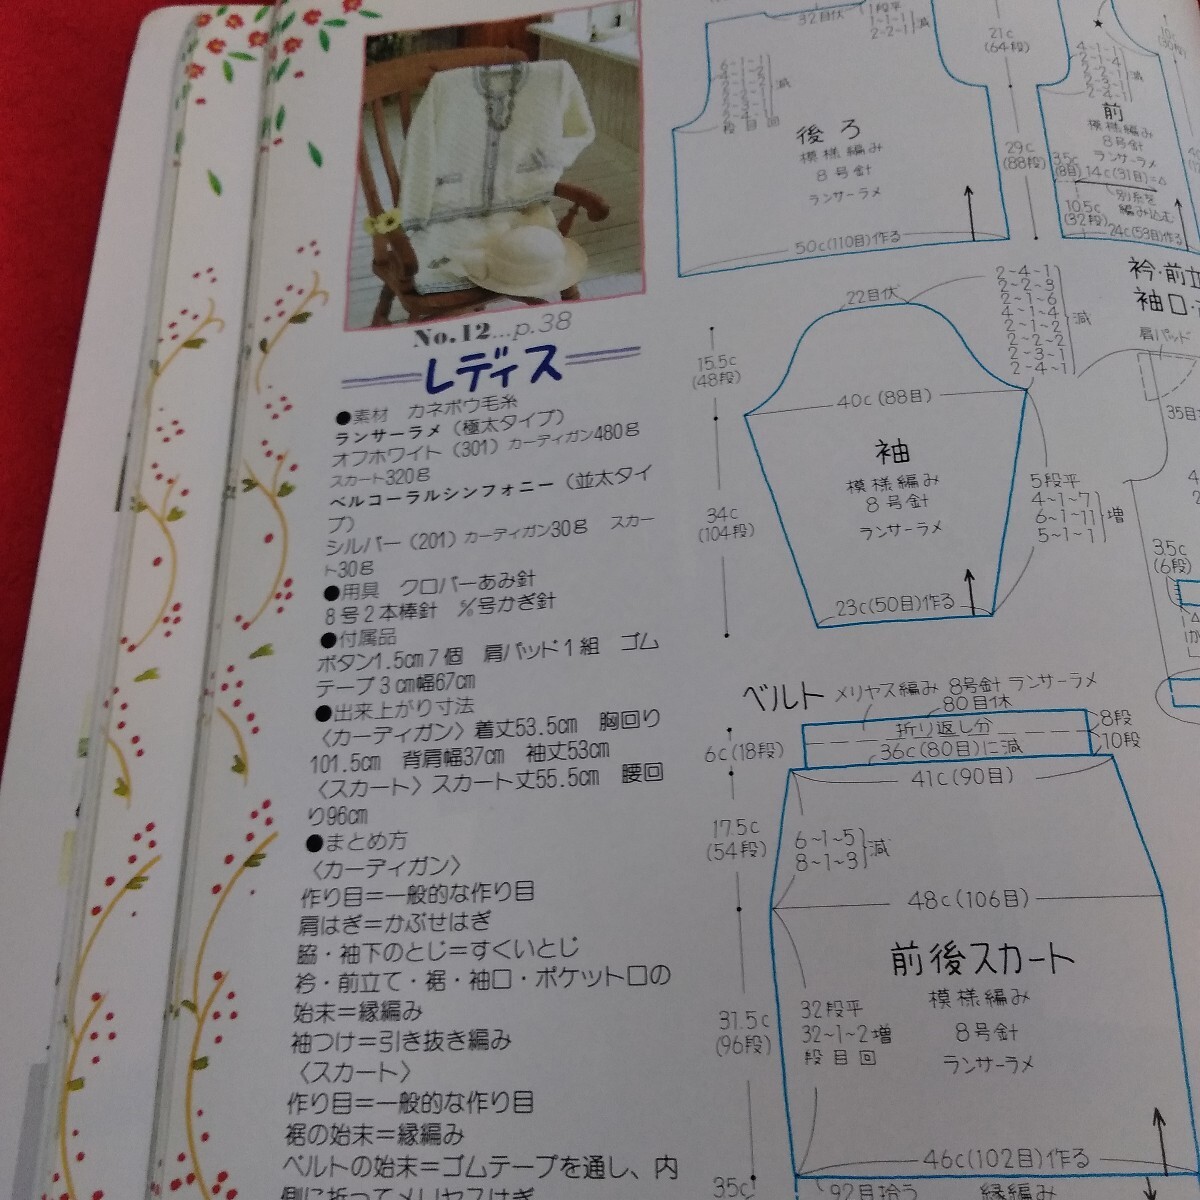 No.12…p.38
レディス
●素材　カネボウ毛糸
ランサーラメ（極太タイプ）
オフホワイト（301）カーディガン480g
スカート320g
ベルコーラルシンフォニー（並太タイ
プ）
シルバー（201）カーディガン30g　スカー
ト30g
●用具　クロバーあみ針
8号2本棒針　号かぎ針
●付属品
ボタン1.5cm7個　肩パッド1組　ゴム
テープ3cm幅67cm
●出来上がり寸法
〈カーディガン〉着丈53.5cm　胸回り
101.5cm　背肩幅37cm　袖丈53cm
〈スカート〉スカート丈55.5cm　腰回
り96cm
●まとめ方
〈カーディガン〉
作り目＝一般的な作り目
肩はぎ＝かぶせはぎ
脇・袖下のとじ＝すくいとじ
衿・前立て・裾・袖口・ポケット口の
始末＝縁編み
袖つけ＝引き抜き編み
〈スカート〉
作り目＝一般的な作り目
裾の始末＝縁編み
ベルトの始末＝ゴムテープを通し、内
側に折ってメリヤスはぎ
32目伏
1段平
1~1~1
2~2~1
減
減
段目回
後ろ
模様編み
8号針
ランサーラメ
50c(110目)作る
21c
(64段)
29c
(88段)
4~1~1
減
前
模様編み
8号針
ランサーラメ
3.5c
(8目)
14c(31目)=△
別糸を
編み込む
10.5c
(32段)
24c(53目)作る
22目伏
2~4~1
2~2~3
2~1~6
4~1~4
2~1~2
2~2~2
2~3~1
2~4~1
減
15.5c
(48段)
40c(88目)
袖
模様編み
8号針
ランサーラメ
34c
(104段)
5段平
4~1~7
6~1~11
5~1~1
増
23c(50目)作る
衿・前立
袖口・
肩パッド
35目
3.5c
(6段)
ベルト　メリヤス編み　8号針　ランサーラメ
80目休
折り返し分
8段
10段
6c(18段)
36c(80目)に減
41c(90目)
17.5c
(54段)
6~1~5
8~1~3
減
48c(106目)
前後スカート
模様編み
8号針
ランサーラメ
31.5c
(96段)
32段平
32~1~2増
段目回
46c(102目)作る
35c
92目拾う
縁編み